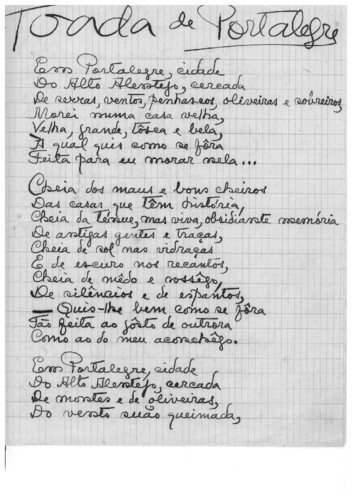 Toada de Portalegre
Em Portalegre, cidade
Do Alto Alentejo, cercada
De serras, ventos, penhascos, oliveiras e sobreiros,
Morei numa casa velha,
Velha, grande, tôsca e bela,
À qual quis como se fôra
Feita para eu morar nela...
Cheia dos maus e bons cheiros
Das casas que têm história,
Cheia da ténue, mas viva, obsidiante memória
De antigas gentes e traças,
Cheia de sol nas vidraças
E de escuro nos recantos,
Cheia de mêdo e sossêgo,
De silêncios e de espantos,
— Quis-lhe bem como se fôra
Tão feita ao gôsto de outrora
Como ao do meu aconchêgo.
Em Portalegre, cidade
Do Alto Alentejo, cercada
De montes e de oliveiras,
Do vento suão queimada,